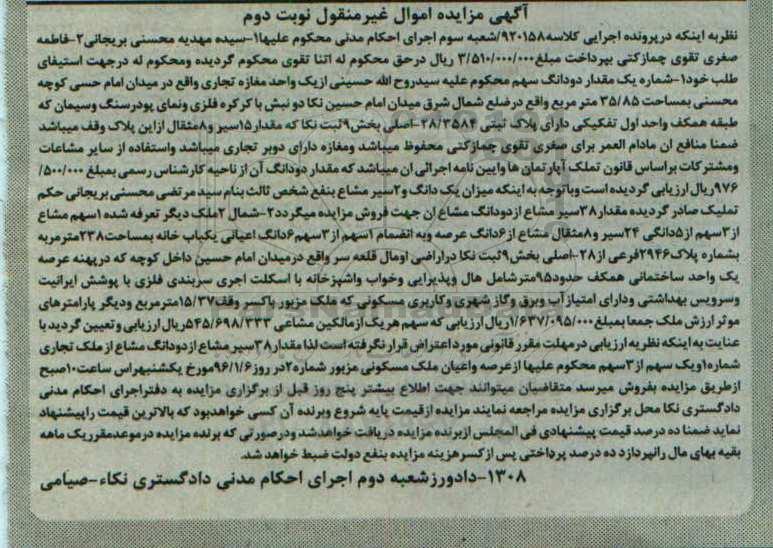 آگهی مزایده اموال غیرمنقول نوبت دوم
نظربه اینکه درپرونده اجرایی کلاسه۹۲۰۱۵۸/شعبه سوم اجرای احکام مدنی محکوم علیها۱-سیده مهدیه محسنی بریجانی۲-فاطمه
صغری تقوی چمازکتی بپرداخت مبلغ۳/۵۱۰/۰۰۰/۰۰۰ ریال درحق محکوم له اتنا تقوی محکوم گردیده ومحکوم له درجهت استیفای
طلب خود۱-شماره یک مقدار دودانگ سهم محکوم علیه سیدروح الله حسینی ازیک واحد مغازه تجاری واقع در میدان امام حسی کوچه
محسنی بمساحت ۳۵/۸۵ متر مربع واقع درضلع شمال شرق میدان امام حسین نکا دو نبش با کرکره فلزی ونمای پودرسنگ وسیمان که
طبقه همکف واحد اول تفکیکی دارای پلاک ثبتی ۲۸/۳۵۸۴-اصلی بخش۹ثبت نکا که مقدار۱۵سیر و۸مثقال ازاین پلاک وقف میباشد
ضمنا منافع ان مادام العمر برای صغری تقوی چمازکتی محفوظ میباشد ومغازه دارای دوبر تجاری میباشد واستفاده از سایر مشاعات
ومشترکات براساس قانون تملک آپارتمان ها وایین نامه اجرائی ان میباشد که مقدار دودانگ آن از ناحیه کارشناس رسمی بمبلغ ۵۰۰/۰۰۰/
۹۷۶ریال ارزیابی گردیده است وباتوجه به اینکه میزان یک دانگ و۲سیر مشاع بنفع شخص ثالث بنام سید مرتضی محسنی بریجانی حکم
تملیک صادر گردیده مقدار۳۸سیر مشاع از دودانگ مشاع ان جهت فروش مزایده میگردد۲-شمال ۲ملک دیگر تعرفه شده ۱سهم مشاع
از۳سهم از۵دانگی ۲۴سیر و۸مثقال مشاع از۶دانگ عرصه وبه انضمام ۱سهم از۳سهم۶دانگ اعیانی یکباب خانه بمساحت۲۳۸مترمربه
بشماره پلاک۲۹۴۶فرعی از۲۸-اصلی بخش۹ثبت نکا دراراضی اومال قلعه سر واقع درمیدان امام حسین داخل کوچه که درپهنه عرصه
یک واحد ساختمانی همکف حدود۹۵مترشامل هال وپذیرایی وخواب واشپزخانه با اسکلت اجری سربندی فلزی با پوشش ایرانیت
وسرویس بهداشتی ودارای امتیاز آب وبرق وگاز شهری وکاربری مسکونی که ملک مزبور باکسر وقف۱۵/۳۷مترمربع ودیگر پارامترهای
موثر ارزش ملک جمعا بمبلغ ۱/۶۳۷/۰۹۵/۰۰۰ریال ارزیابی که سهم هریک ازمالکین مشاعی ۵۴۵/۶۹۸/۳۳۳ریال ارزیابی وتعیین گردید با
عنایت به اینکه نظریه ارزیابی درمهلت مقرر قانونی مورد اعتراض قرار نگرفته است لذا مقدار۳۸سیر مشاع از دودانگ مشاع از ملک تجاری
شماره۱ویک سهم از۳سهم محکوم علیها ازعرصه واعیان ملک مسکونی مزبور شماره۲در روز ۹۶/۱/۶مورخ یکشنبهراس ساعت۱۰صبح
ازطریق مزایده بفروش میرسد متقاضیان میتوانند جهت اطلاع بیشتر پنج روز قبل از برگزاری مزایده به دفتراجرای احکام مدنی
دادگستری نکا محل برگزاری مزایده مراجعه نمایند مزایده ازقیمت پایه شروع وبرنده آن کسی خواهدبود که بالاترین قیمت راپیشنهاد
نماید ضمنا ده درصد قیمت پیشنهادی فی المجلس ازبرنده مزایده دریافت خواهدشد ودرصورتی که برنده مزایده درموعدمقرریک ماهه
بقیه بهای مال رانپردازد ده درصد پرداختی پس از کسرهزینه مزایده بنفع دولت ضبط خواهد شد.
۱۳۰۸-دادورزشعبه دوم اجرای احکام مدنی دادگستری نکاء-صیامی